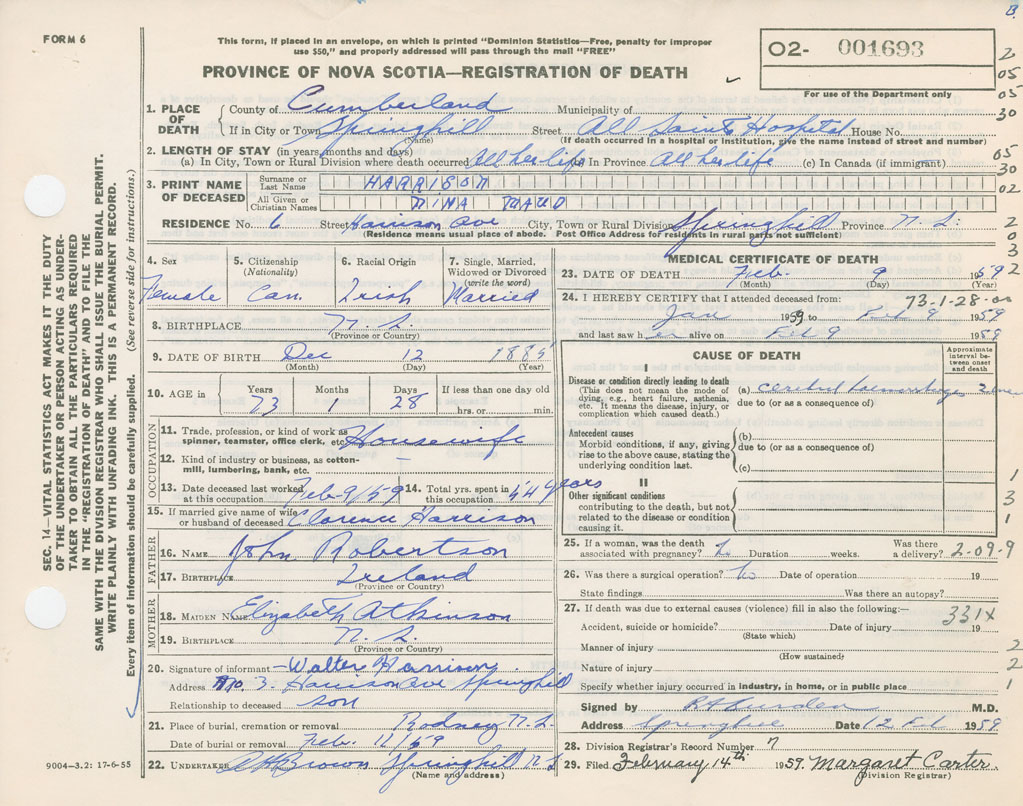 B.
FORM 6
This form, if placed in an envelope, on which is printed "Dominion Statistics—Free, penalty for improper
use $50," and properly addressed will pass through the mail "FREE"
PROVINCE OF NOVA SCOTIA—REGISTRATION OF DEATH
O2- 001693
For use of the Department only
2
05
05
30
05
30
02
2
0
3
2
SEC. 14—VITAL STATISTICS ACT MAKES IT THE DUTY
OF THE UNDERTAKER OR PERSON ACTING AS UNDER-
TAKER TO OBTAIN ALL THE PARTICULARS REQUIRED
IN THE "REGISTRATION OF DEATH" AND TO FILE THE
SAME WITH THE DIVISION REGISTRAR WHO SHALL ISSUE THE BURIAL PERMIT.
WRITE PLAINLY WITH UNFADING INK. THIS IS A PERMANENT RECORD.
Every item of information should be carefully supplied. (See reverse side for instructions.)
1. PLACE OF DEATH County of Cumberland Municipality of
If in City or Town Springhill Street All Saints Hospital House No.
(Name) (If death occurred in a hospital or institution, give the name instead of street and number)
2. LENGTH OF STAY (in years, months and days)
(a) In City, Town or Rural Division where death occurred All her life (b) In Province All her life (c) In Canada (if immigrant)
3. PRINT NAME OF DECEASED Surname or Last Name HARRISON
All Given or Christian Names NINA MAUD
RESIDENCE No. 6 Street Harrison Ave City, Town or Rural Division Springhill Province N.S.
(Residence means usual place of abode. Post Office Address for residents in rural parts not sufficient)
4. Sex 5. Citizenship (Nationality) 6. Racial Origin 7. Single, Married, Widowed or Divorced (write the word)
Female Can. Irish Married
8. BIRTHPLACE N.S.
(Province or Country)
9. DATE OF BIRTH Dec 12 1885
(Month) (Day) (Year)
10. AGE in Years 73 Months 1 Days 28 If less than one day old hrs. or min.
OCCUPATION
11. Trade, profession, or kind of work as spinner, teamster, office clerk, etc. Housewife
12. Kind of industry or business, as cotton-mill, lumbering, bank, etc. —
13. Date deceased last worked at this occupation Feb 9/59 14. Total yrs. spent in this occupation 54 years
15. If married give name of wife or husband of deceased Clarence Harrison
FATHER
16. NAME John Robertson
17. BIRTHPLACE Ireland
(Province or Country)
MOTHER
18. MAIDEN NAME Elizabeth Atkinson
19. BIRTHPLACE N.S.
(Province or Country)
20. Signature of informant — Walter Harrison
Address No. 3. Harrison Ave Springhill
Relationship to deceased son
21. Place of burial, cremation or removal Rodney N.S.
Date of burial or removal Feb. 11/59
22. UNDERTAKER Brown Springhill N.S.
(Name and address)
9004—3.2: 17-6-55
MEDICAL CERTIFICATE OF DEATH
23. DATE OF DEATH Feb. 9 1959
(Month) (Day) (Year)
24. I HEREBY CERTIFY that I attended deceased from: 73-1-28-00
Jan 1959 to Feb 9 1959
and last saw her alive on Feb 9 1959
CAUSE OF DEATH
Approximate interval between onset and death
I
Disease or condition directly leading to death
(This does not mean the mode of dying, e.g., heart failure, asthenia, etc. It means the disease, injury, or complication which caused death.)
(a) Cerebral haemorrhage
due to (or as a consequence of)
Antecedent causes
Morbid conditions, if any, giving rise to the above cause, stating the underlying condition last.
(b)
due to (or as a consequence of)
(c)
II
Other significant conditions
contributing to the death, but not related to the disease or condition causing it.
1
3
1
25. If a woman, was the death associated with pregnancy? No Duration weeks. Was there a delivery? 2-09-9
26. Was there a surgical operation? No Date of operation 19
State findings Was there an autopsy?
27. If death was due to external causes (violence) fill in also the following:— 331X
Accident, suicide or homicide? Date of injury 19
(State which)
Manner of injury 2
(How sustained)
Nature of injury 2
Specify whether injury occurred in industry, in home, or in public place 1
Signed by Burden M.D.
Address Springhill Date 12 Feb 1959
28. Division Registrar's Record Number 7
29. Filed February 14th 1959. Margaret Carter.
(Division Registrar)